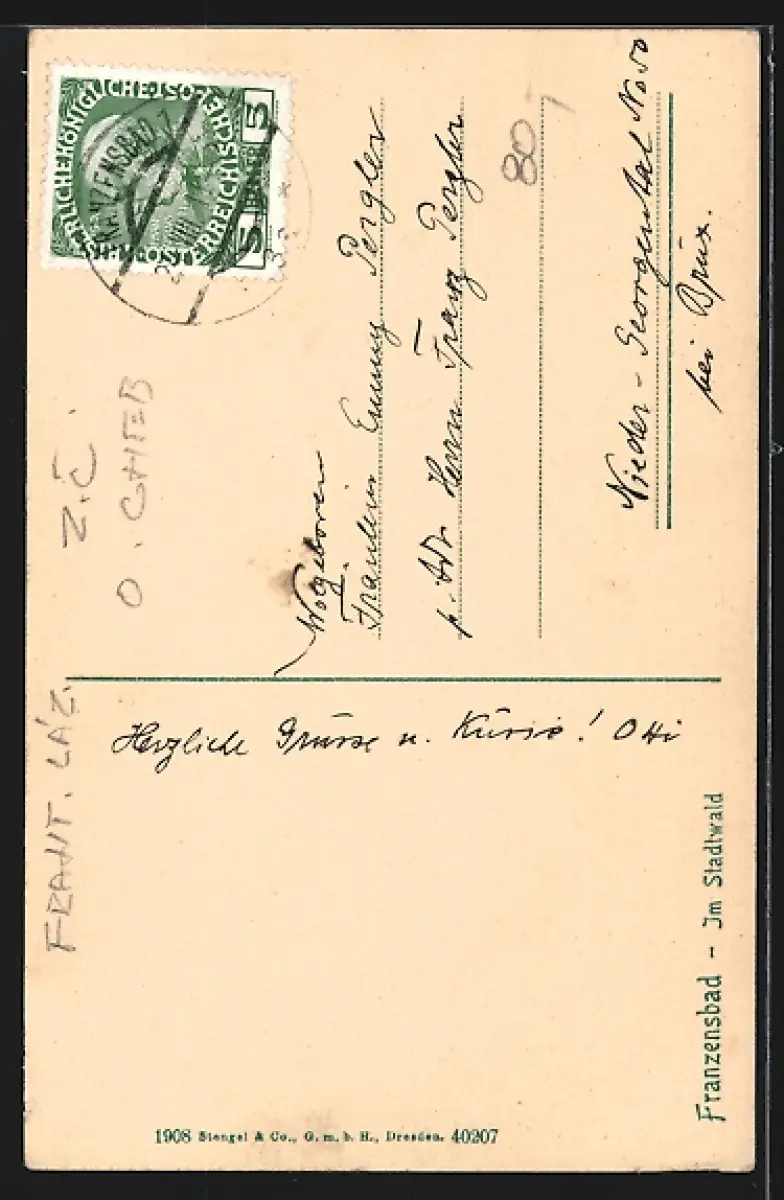 KAISERLICHE KÖNIGLICHE ÖSTERREICHISCHE POST
5 HELLER 5
FRANZENSBAD 1
VIII
Z. Č.
O. CHEB
FRANT. LÁZ.
80
Wolgeboren
Fräulein Emmy Pergler
p. Adr. Herrn Franz Pergler
Nieder-Georgental No 50
bei Brüx.
Herzliche Grüsse u. Küsse! Otti
Franzensbad - Im Stadtwald
1908 Stengel & Co., G. m. b. H., Dresden. 40207